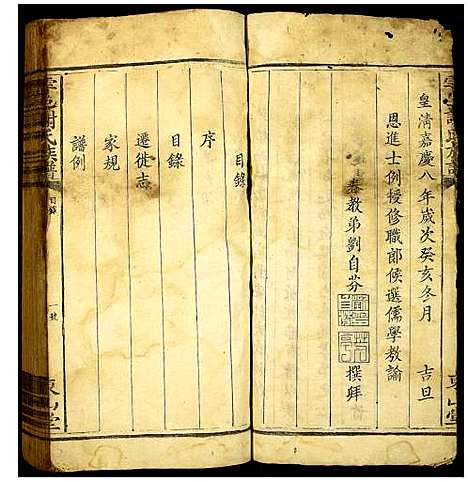 皇清嘉慶八年歲次癸亥冬月　吉旦
恩進士例授修職郎候選儒學教諭
眷教弟劉自芬　撰拜
目錄
序
目錄
遷徙志
家規
譜例
邑謝氏族譜
目錄
一號
東山堂
東山堂